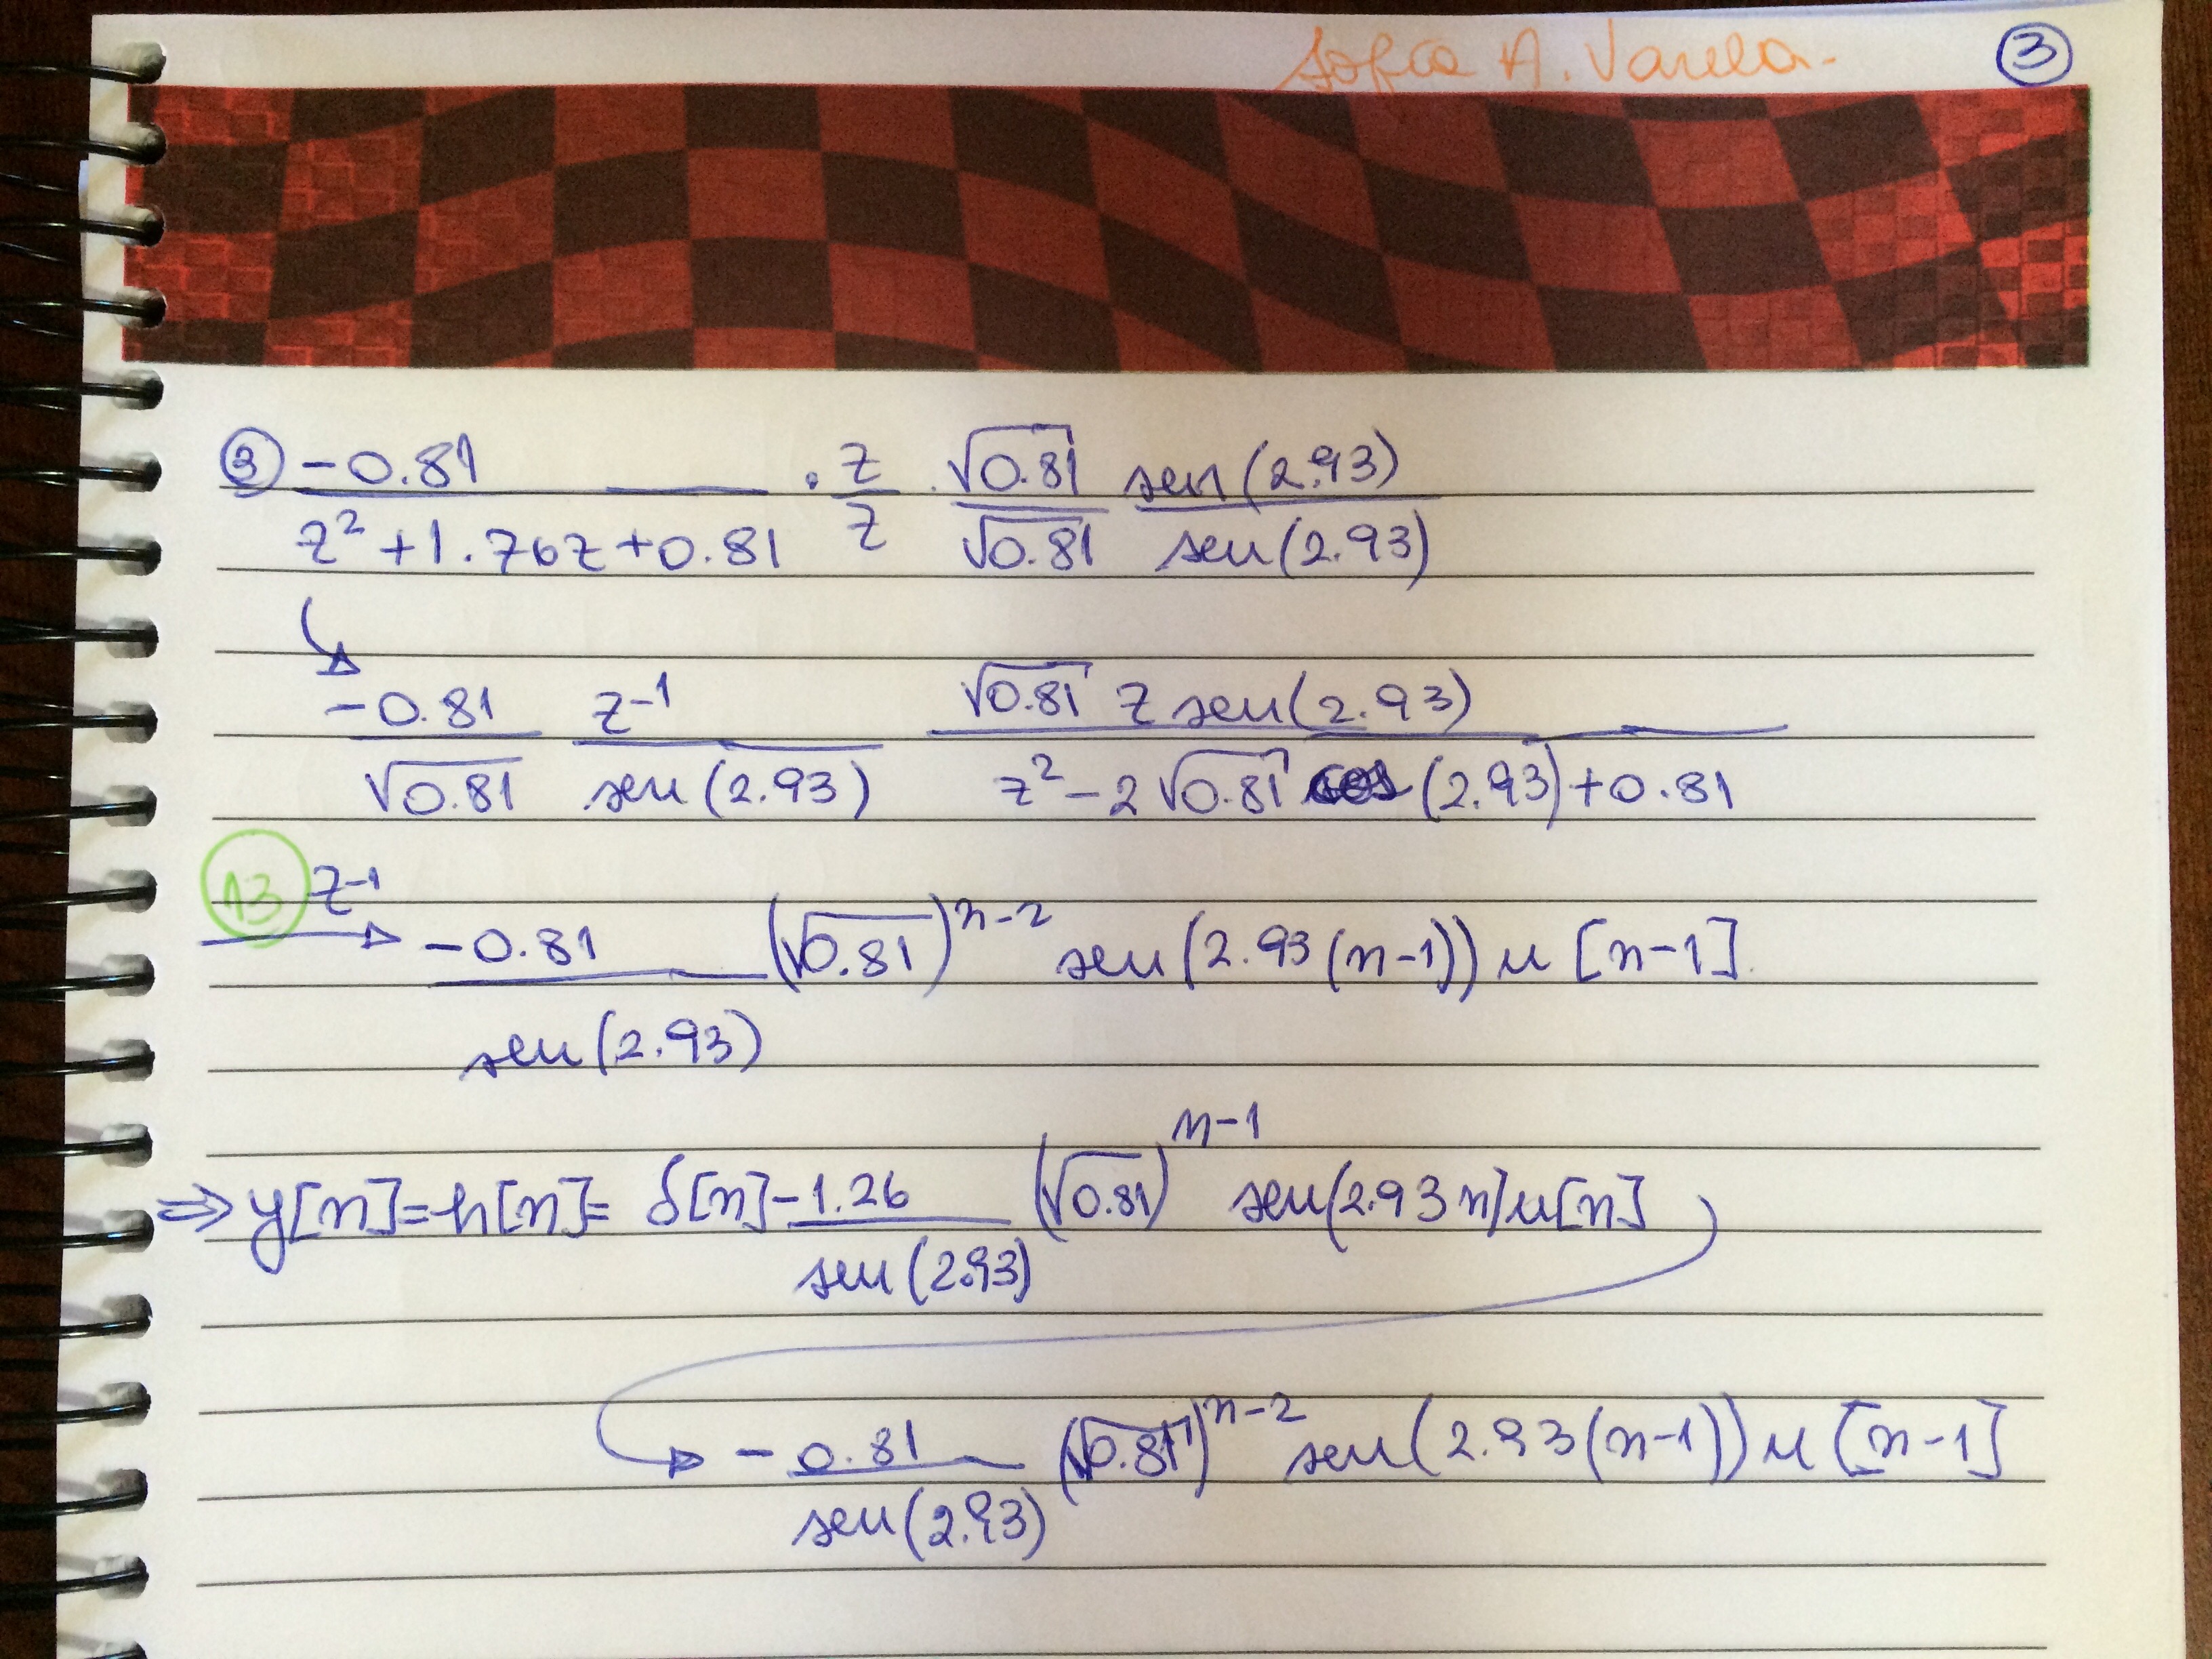 Sofia A. Varela. ③
③ -0.81 / z² + 1.76z + 0.81 · z/z · √0.81/√0.81 sen(2.93)/sen(2.93)
-0.81/√0.81 z⁻¹/sen(2.93) √0.81 z sen(2.93) / z² - 2√0.81 cos(2.93) + 0.81
13 z⁻¹ → -0.81/sen(2.93) (√0.81)ⁿ⁻² sen(2.93(n-1)) u[n-1]
⇒ y[n] = h[n] = δ[n] - 1.26/sen(2.93) (√0.81)ⁿ⁻¹ sen(2.93n) u[n]
→ - 0.81/sen(2.93) (√0.81)ⁿ⁻² sen(2.93(n-1)) u[n-1]